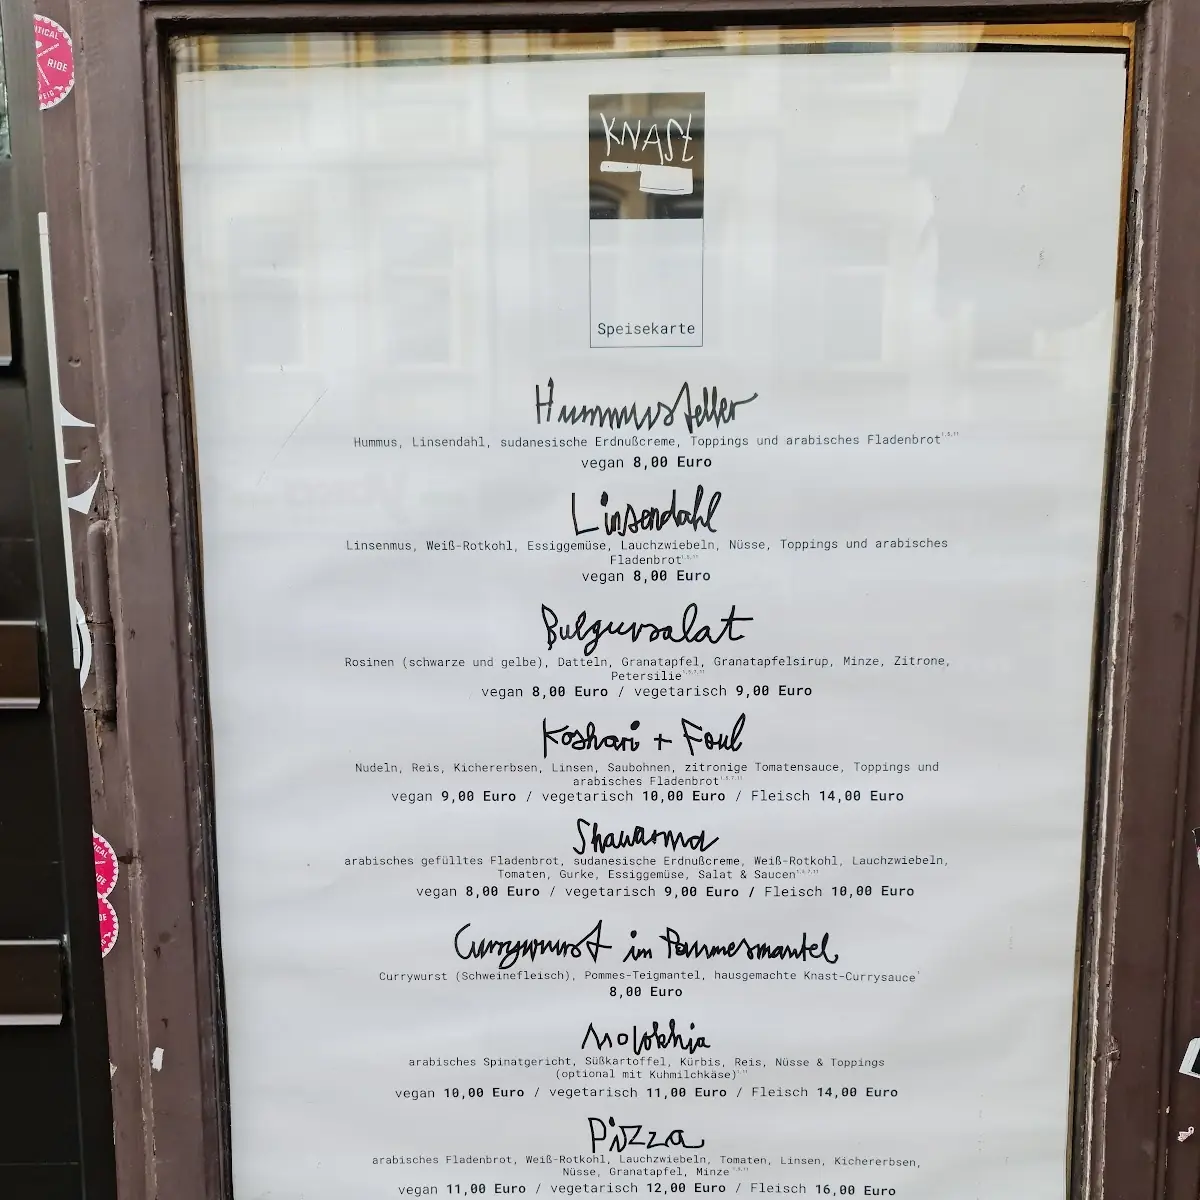 KNAST
Speisekarte
Hummusteller
Hummus, Linsendahl, sudanesische Erdnußcreme, Toppings und arabisches Fladenbrot
vegan 8,00 Euro
Linsendahl
Linsenmus, Weiß-Rotkohl, Essiggemüse, Lauchzwiebeln, Nüsse, Toppings und arabisches
Fladenbrot
vegan 8,00 Euro
Bulgursalat
Rosinen (schwarze und gelbe), Datteln, Granatapfel, Granatapfelsirup, Minze, Zitrone,
Petersilie
vegan 8,00 Euro / vegetarisch 9,00 Euro
Koshari + Foul
Nudeln, Reis, Kichererbsen, Linsen, Saubohnen, zitronige Tomatensauce, Toppings und
arabisches Fladenbrot
vegan 9,00 Euro / vegetarisch 10,00 Euro / Fleisch 14,00 Euro
Shawarma
arabisches gefülltes Fladenbrot, sudanesische Erdnußcreme, Weiß-Rotkohl, Lauchzwiebeln,
Tomaten, Gurke, Essiggemüse, Salat & Saucen
vegan 8,00 Euro / vegetarisch 9,00 Euro / Fleisch 10,00 Euro
Currywurst im Pommesmantel
Currywurst (Schweinefleisch), Pommes-Teigmantel, hausgemachte Knast-Currysauce
8,00 Euro
Molokhia
arabisches Spinatgericht, Süßkartoffel, Kürbis, Reis, Nüsse & Toppings
(optional mit Kuhmilchkäse)
vegan 10,00 Euro / vegetarisch 11,00 Euro / Fleisch 14,00 Euro
Pizza
arabisches Fladenbrot, Weiß-Rotkohl, Lauchzwiebeln, Tomaten, Linsen, Kichererbsen,
Nüsse, Granatapfel, Minze
vegan 11,00 Euro / vegetarisch 12,00 Euro / Fleisch 16,00 Euro
RIDE